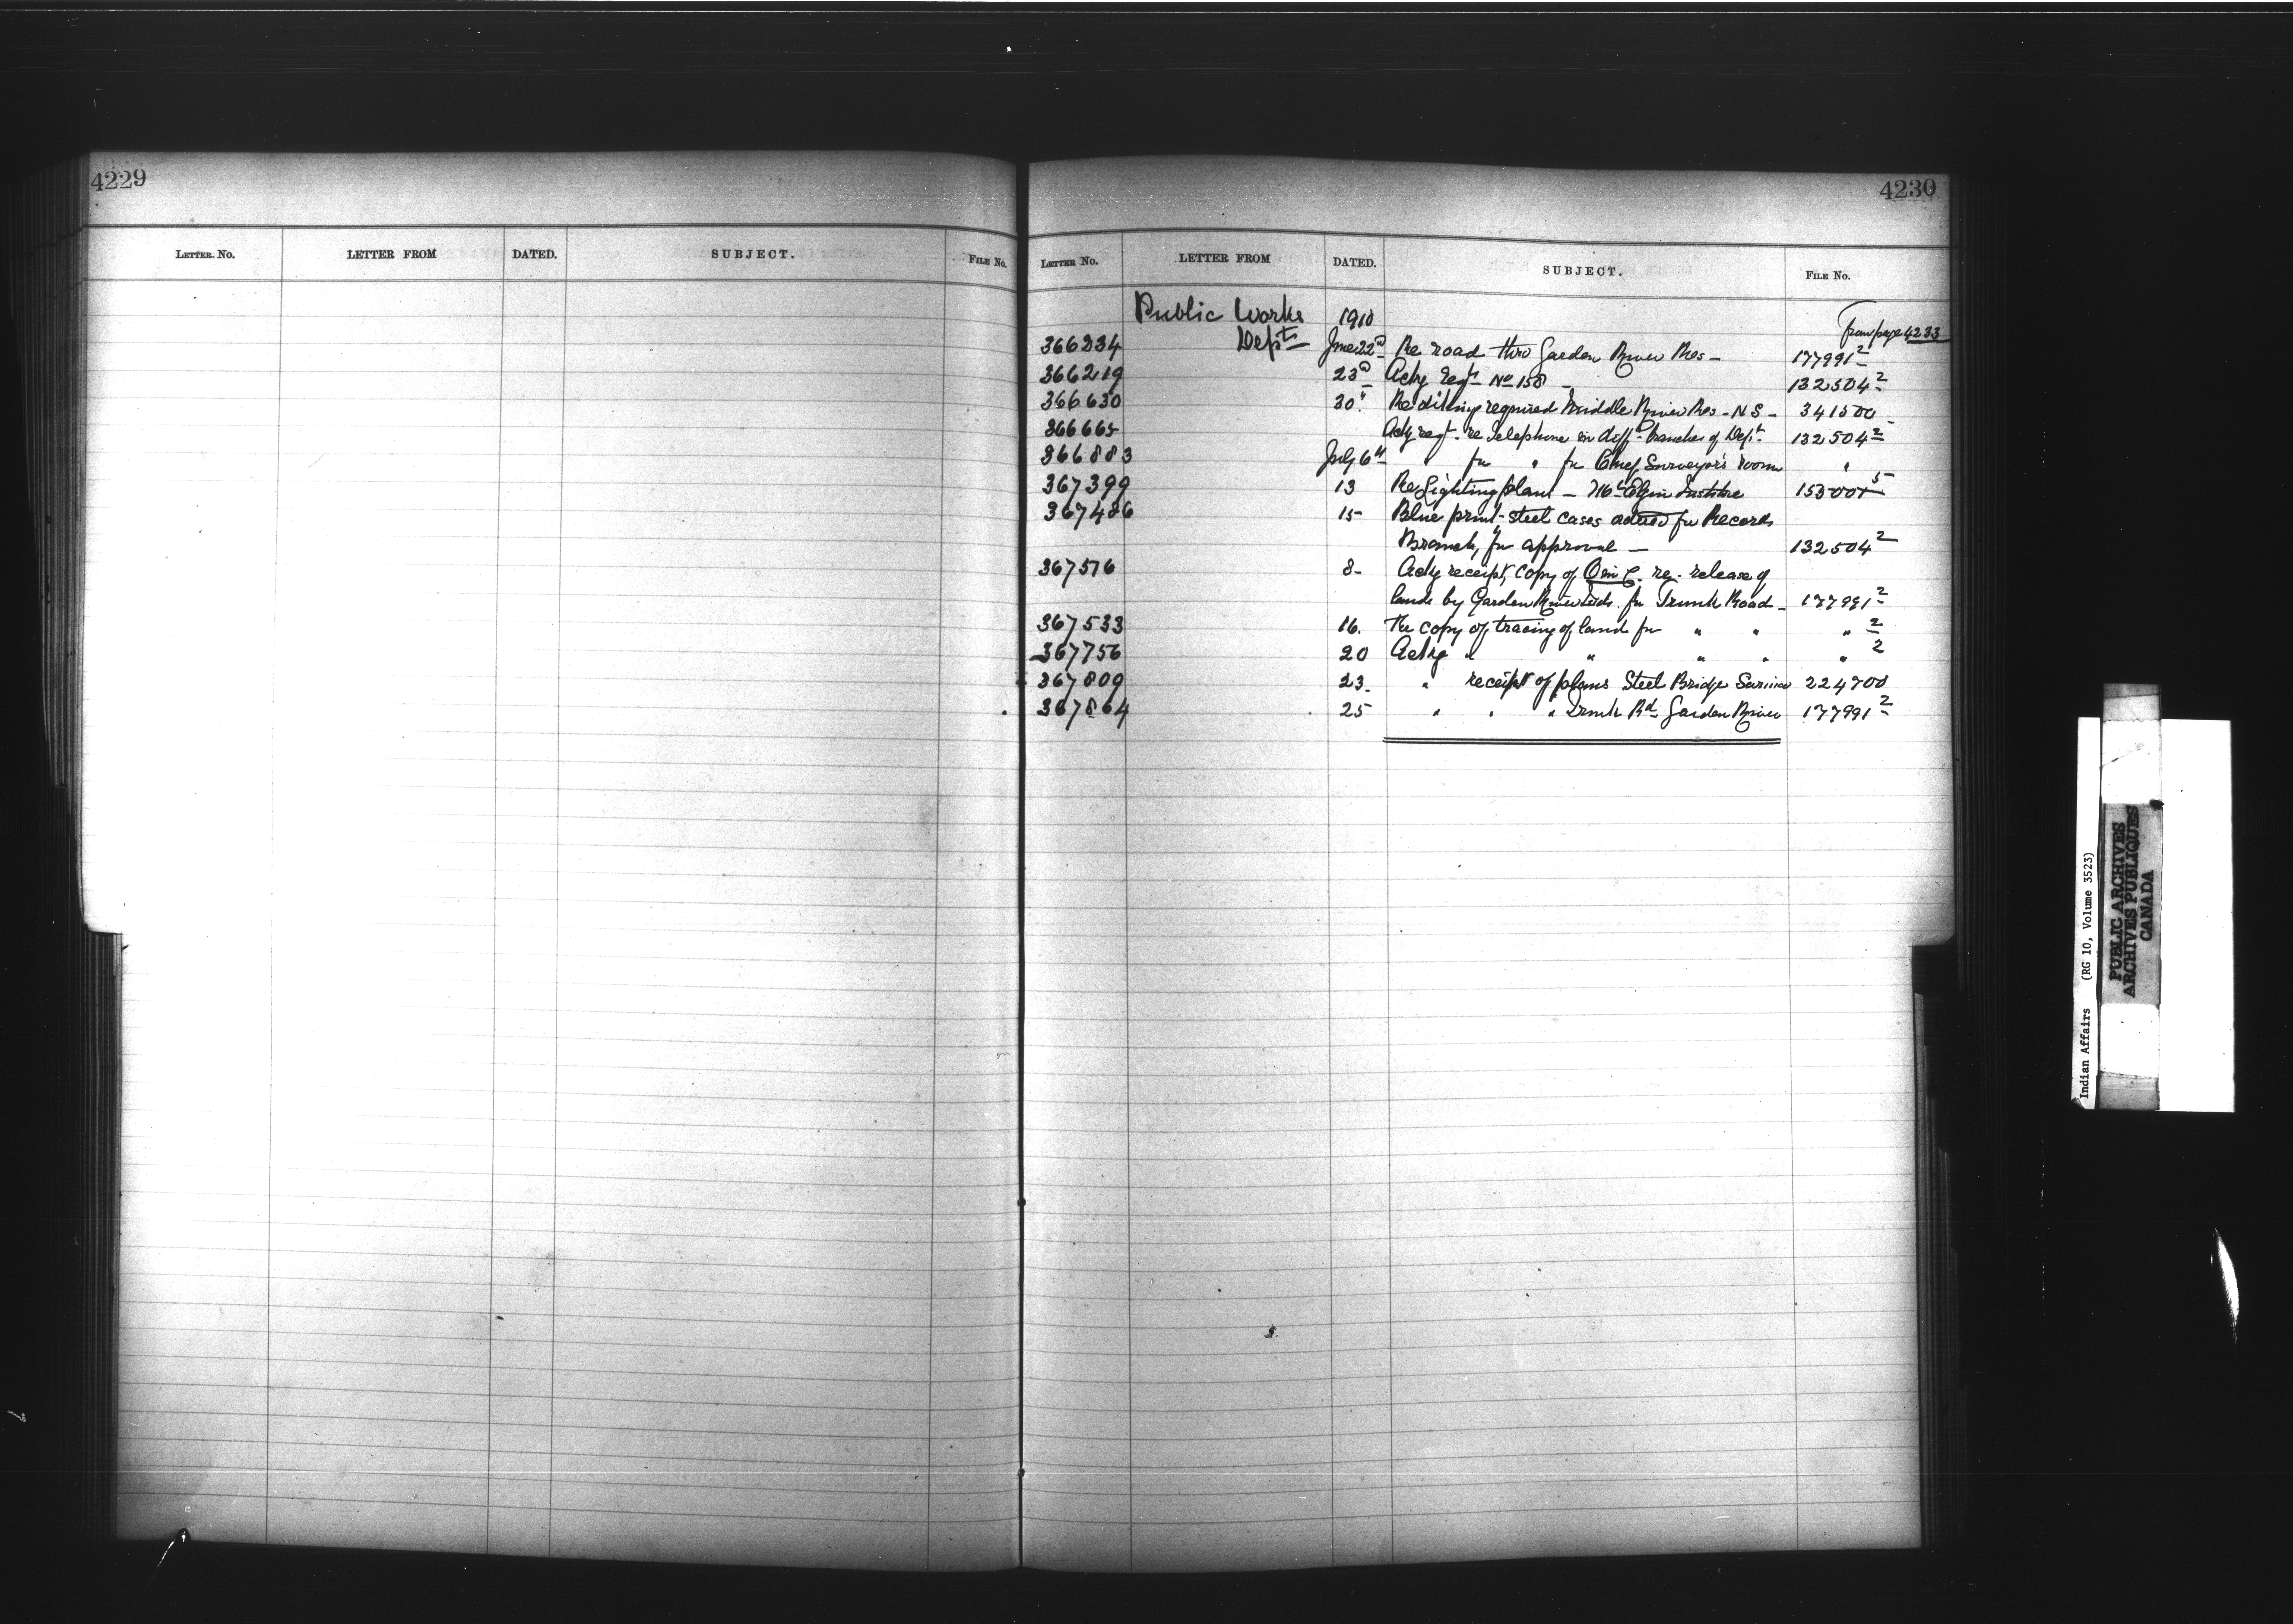 4229
LETTER No. LETTER FROM DATED. SUBJECT. FILE No.
4230
LETTER No. LETTER FROM DATED. SUBJECT. FILE No.
Public Works 1910 From page 4233
366234 Dept June 22d Re road thro Garden River Res - 177991²
366219 23d Ackg reqn No 158 - 132504²
366630 30" Re diking required Middle River Res - N S - 341500
366665 Ackg reqt. re telephone in diff. branches of Dept. 132504²
366883 July 6th " for " for Chief Surveyor's room "
367399 13 Re Lighting plant - Mt Elgin Institute 153001⁵
367486 15 Blue print - steel cases ordered for Records
Branch, for approval - 132504²
367576 8 - Ackg receipt, copy of O in C. re - release of
lands by Garden River Inds. for Trunk Road - 177991²
367533 16. Re copy of tracing of land for " " " ²
367756 20 Ackg " " " " " ²
367809 23. " receipt of plans Steel Bridge Sarnia 224700
367864 25 " " " Trunk Rd. Garden River 177991²
Indian Affairs (RG 10, Volume 3523)
PUBLIC ARCHIVES
ARCHIVES PUBLIQUES
CANADA